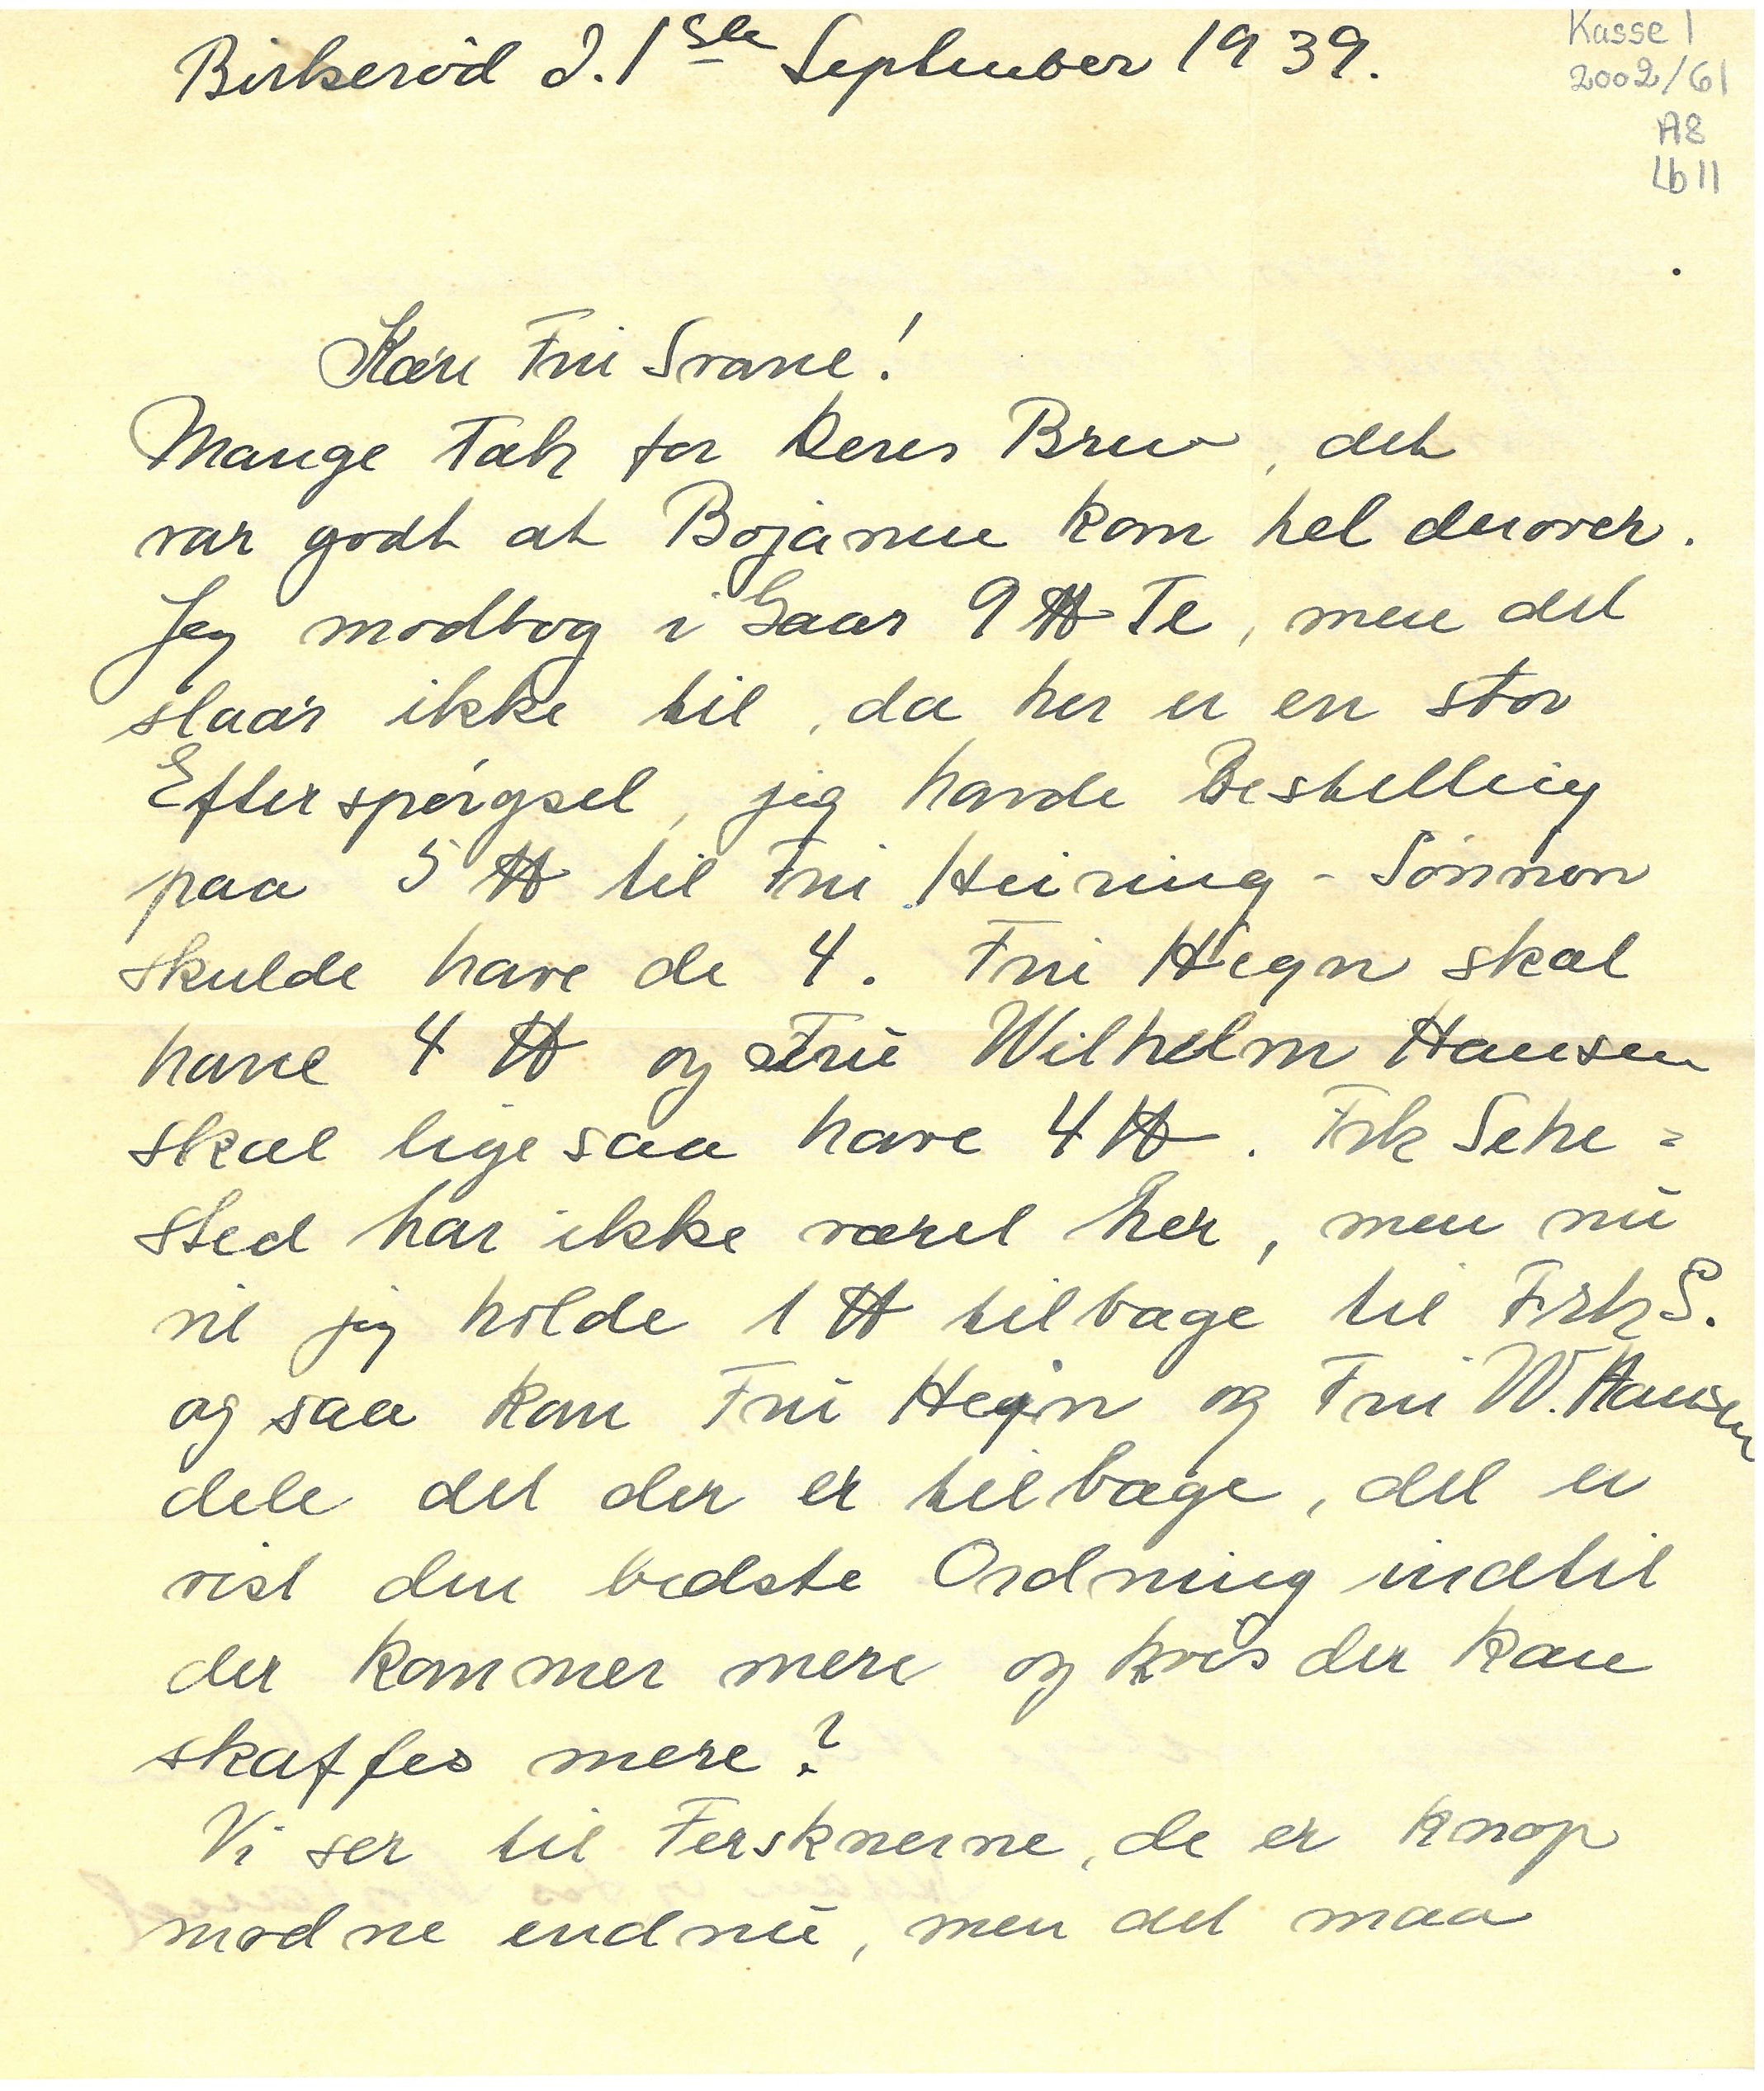 Birkerød d. 1ste September 1939.
Kasse 1
2002/61
A8
Lb 11
Kære Fru Svane!
Mange Tak for Deres Brev, det
var godt at Bojanne kom hel derover.
Jeg modtog i Gaar 9 ℔ Te, men det
slaar ikke til, da her er en stor
Efterspørgsel, jeg havde Bestelling
paa 5 ℔ til Fru Heiring - Sønnen
skulde have de 4. Fru Hegn skal
have 4 ℔ og Fru Wilhelm Hansen
skal ligesaa have 4 ℔. Frk Sehe=
sted har ikke været her, men nu
vil jeg holde 1 ℔ tilbage til Frk S.
og saa kan Fru Hegn og Fru W. Hansen
dele det der er tilbage, det er
vist den bedste Ordning indtil
der kommer mere og hvis der kan
skaffes mere?
Vi ser til Fersknerne, de er knap
modne endnu, men det maa